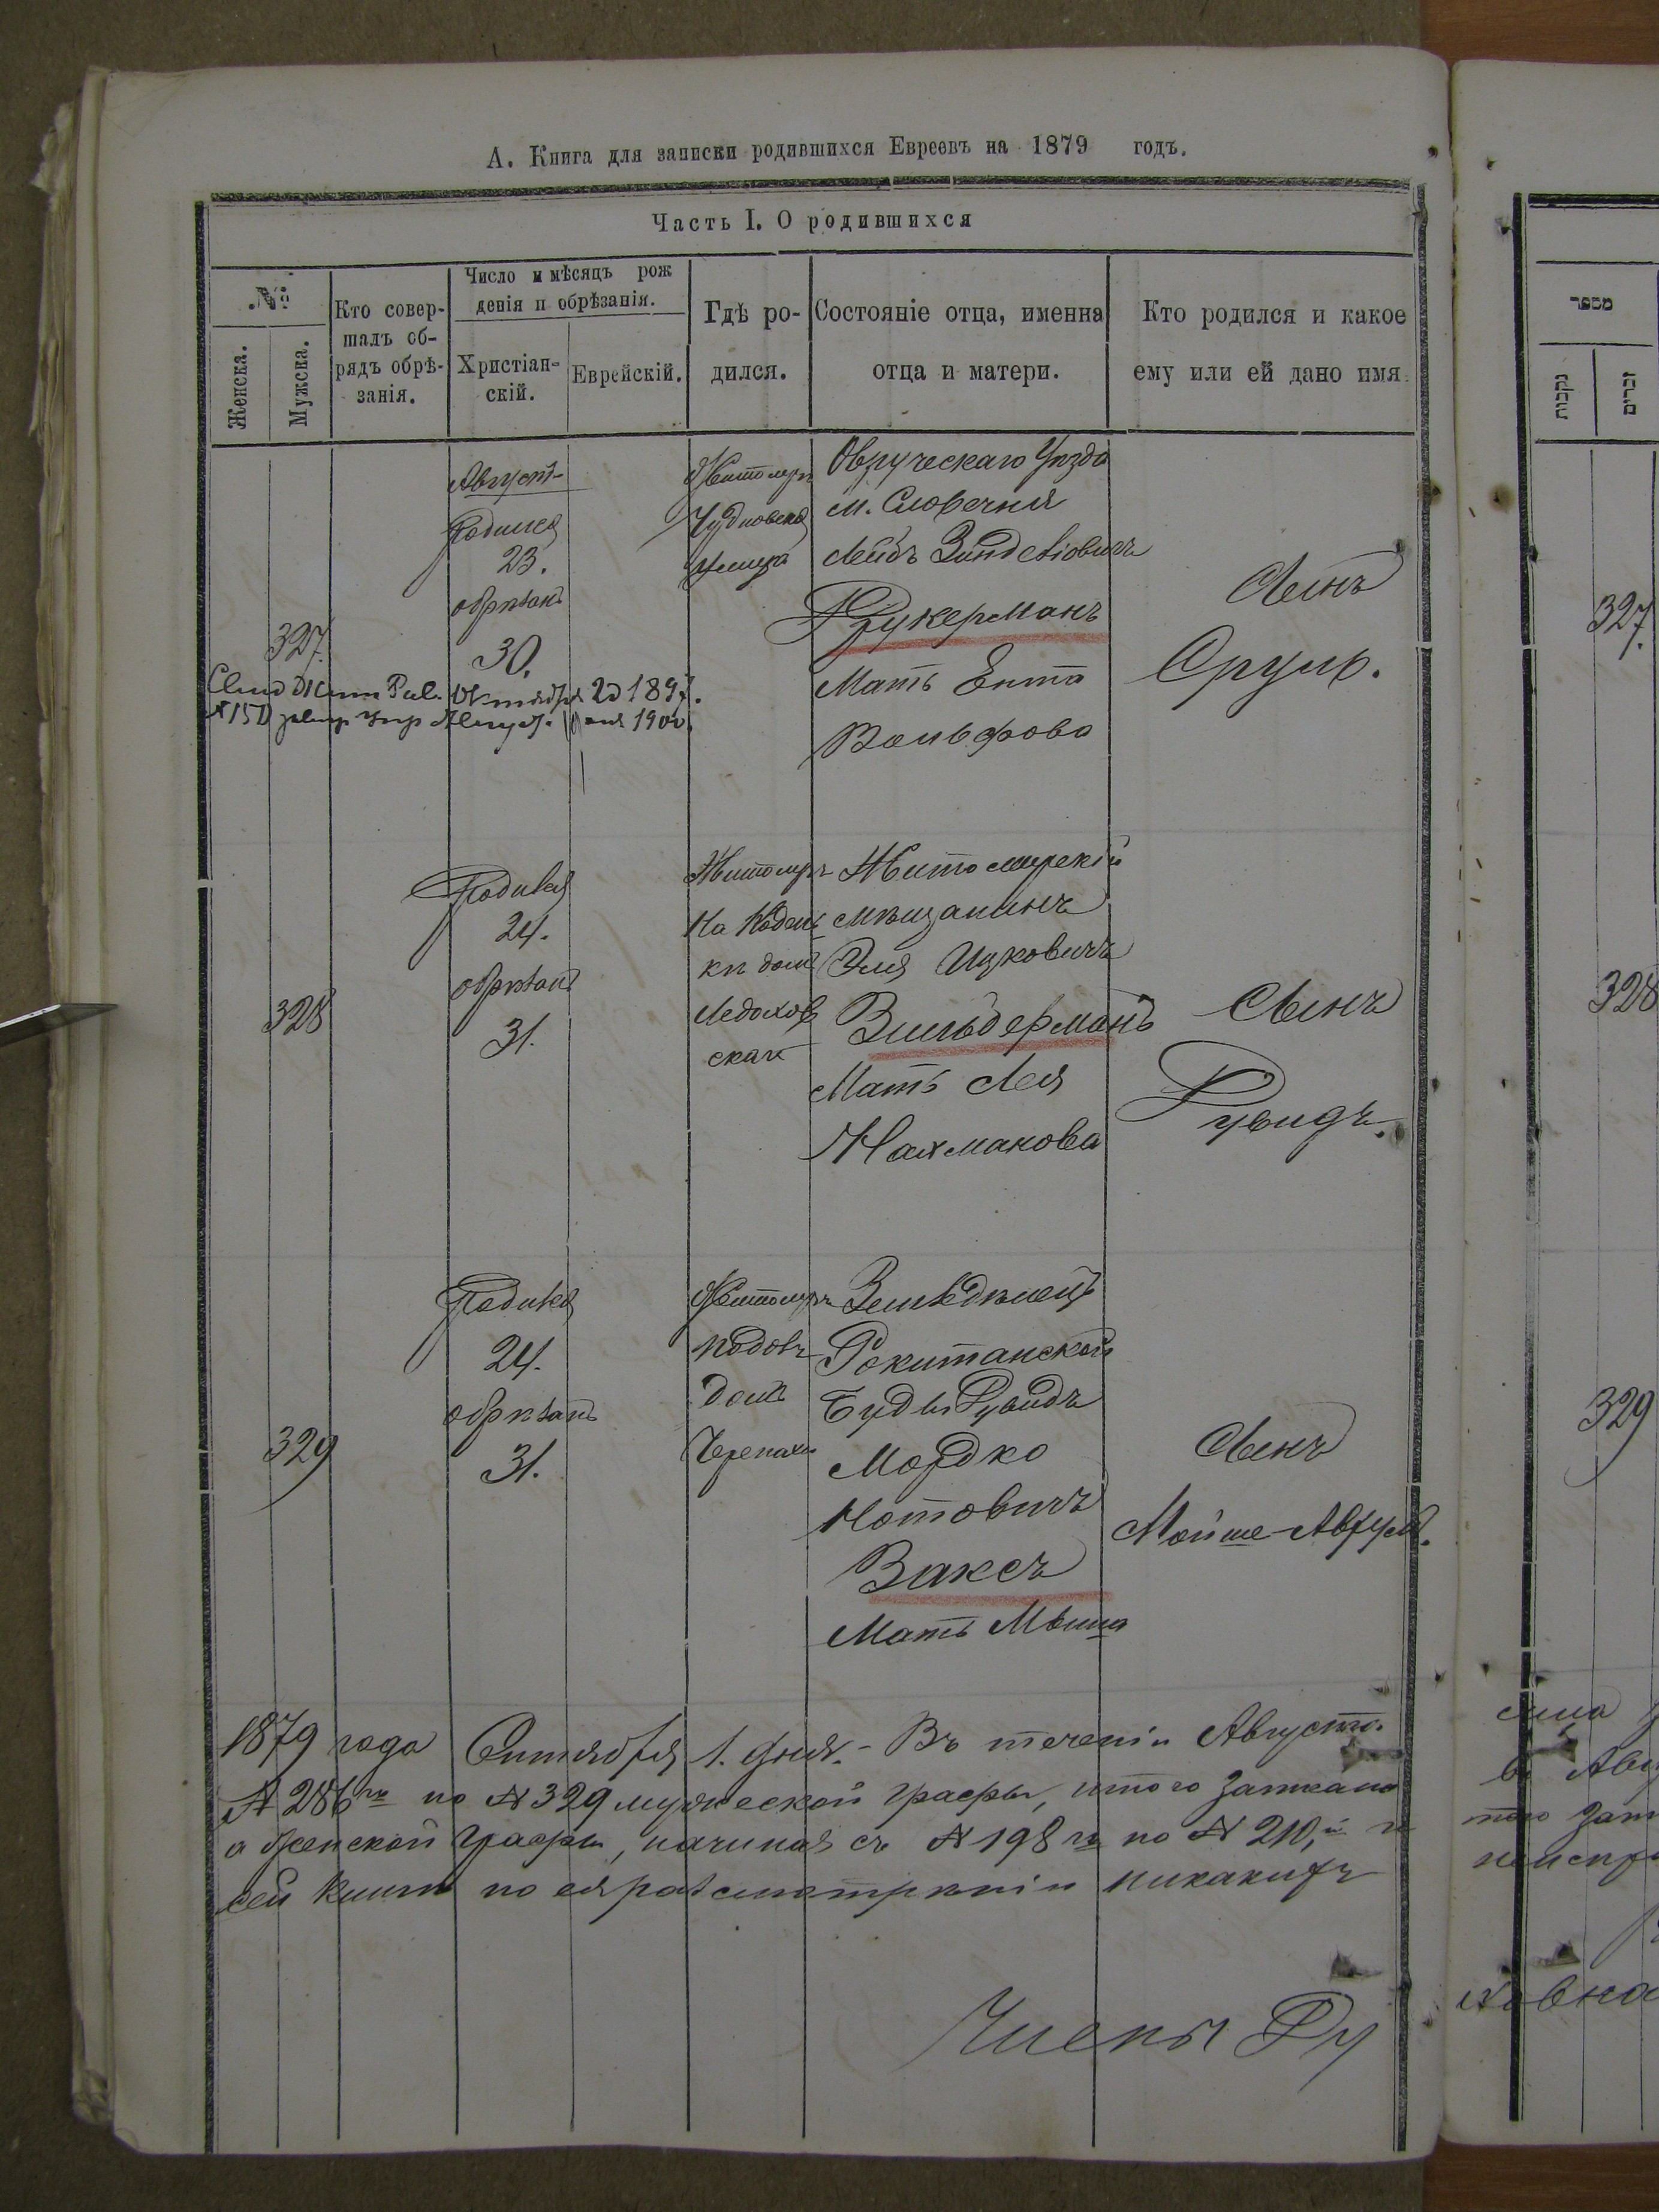 А. Книга для записки родившихся Евреевъ на 1879 годъ.
Часть I. О родившихся
№
Женска.
Мужска.
Кто совер-
шалъ об-
рядъ обрѣ-
занія.
Число и мѣсяцъ рож
денія и обрѣзанія.
Христіан-
скій.
Еврейскій.
Гдѣ ро-
дился.
Состояніе отца, именна
отца и матери.
Кто родился и какое
ему или ей дано имя
327.
Августъ
Родился
23.
обрѣзанъ
30.
Житомиръ
Чудновская
улица
Овручскаго Уѣзда
м. Словечня
Лейбъ Зинделіовичъ
Цукерманъ
Мать Ента
Вольфова
Сынъ
Сруль.
328
Родился
24.
обрѣзанъ
31.
Житомиръ
На Кодень
кѣ домъ
Ледохов
скаго
Житомирскій
мѣщанинъ
Эля Ицковичъ
Зильберманъ
Мать Лея
Нахманова
Сынъ
Рувидъ.
329
Родился
24.
обрѣзанъ
31.
Житомиръ
домъ
Черепахи
Земледѣлецъ
Рокитанской
Буды Рувидъ
Мордко
Нотовичъ
Ваксъ
Мать
Сынъ
Мойше-Аврумъ.
1879 года Сентября 1. дня. - Въ теченіи Августа
№ 286го по № 329 мужеской графы, итого записано
а женской графы, начиная съ № 198го по № 210,й
сей книги по ея разсмотрѣніи никакихъ
Члены Ру
מספר
נקבות
זכרים
327.
328
329